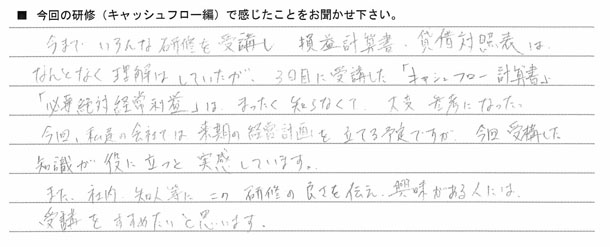 ■ 今回の研修（キャッシュフロー編）で感じたことをお聞かせ下さい。
今まで いろんな研修を受講し 損益計算書、貸借対照表は、
なんとなく理解はしていたが、3日目に受講した「キャッシュフロー計算書」
「必要絶対経常利益」は、まったく知らなくて、大変 参考になった。
今回、私達の会社では 来期の経営計画を立てる予定ですが、今回受講した
知識が役に立つと実感しています。
また、社内、知人等に この研修の良さを伝え、興味がある人には、
受講をすすめたいと思います。